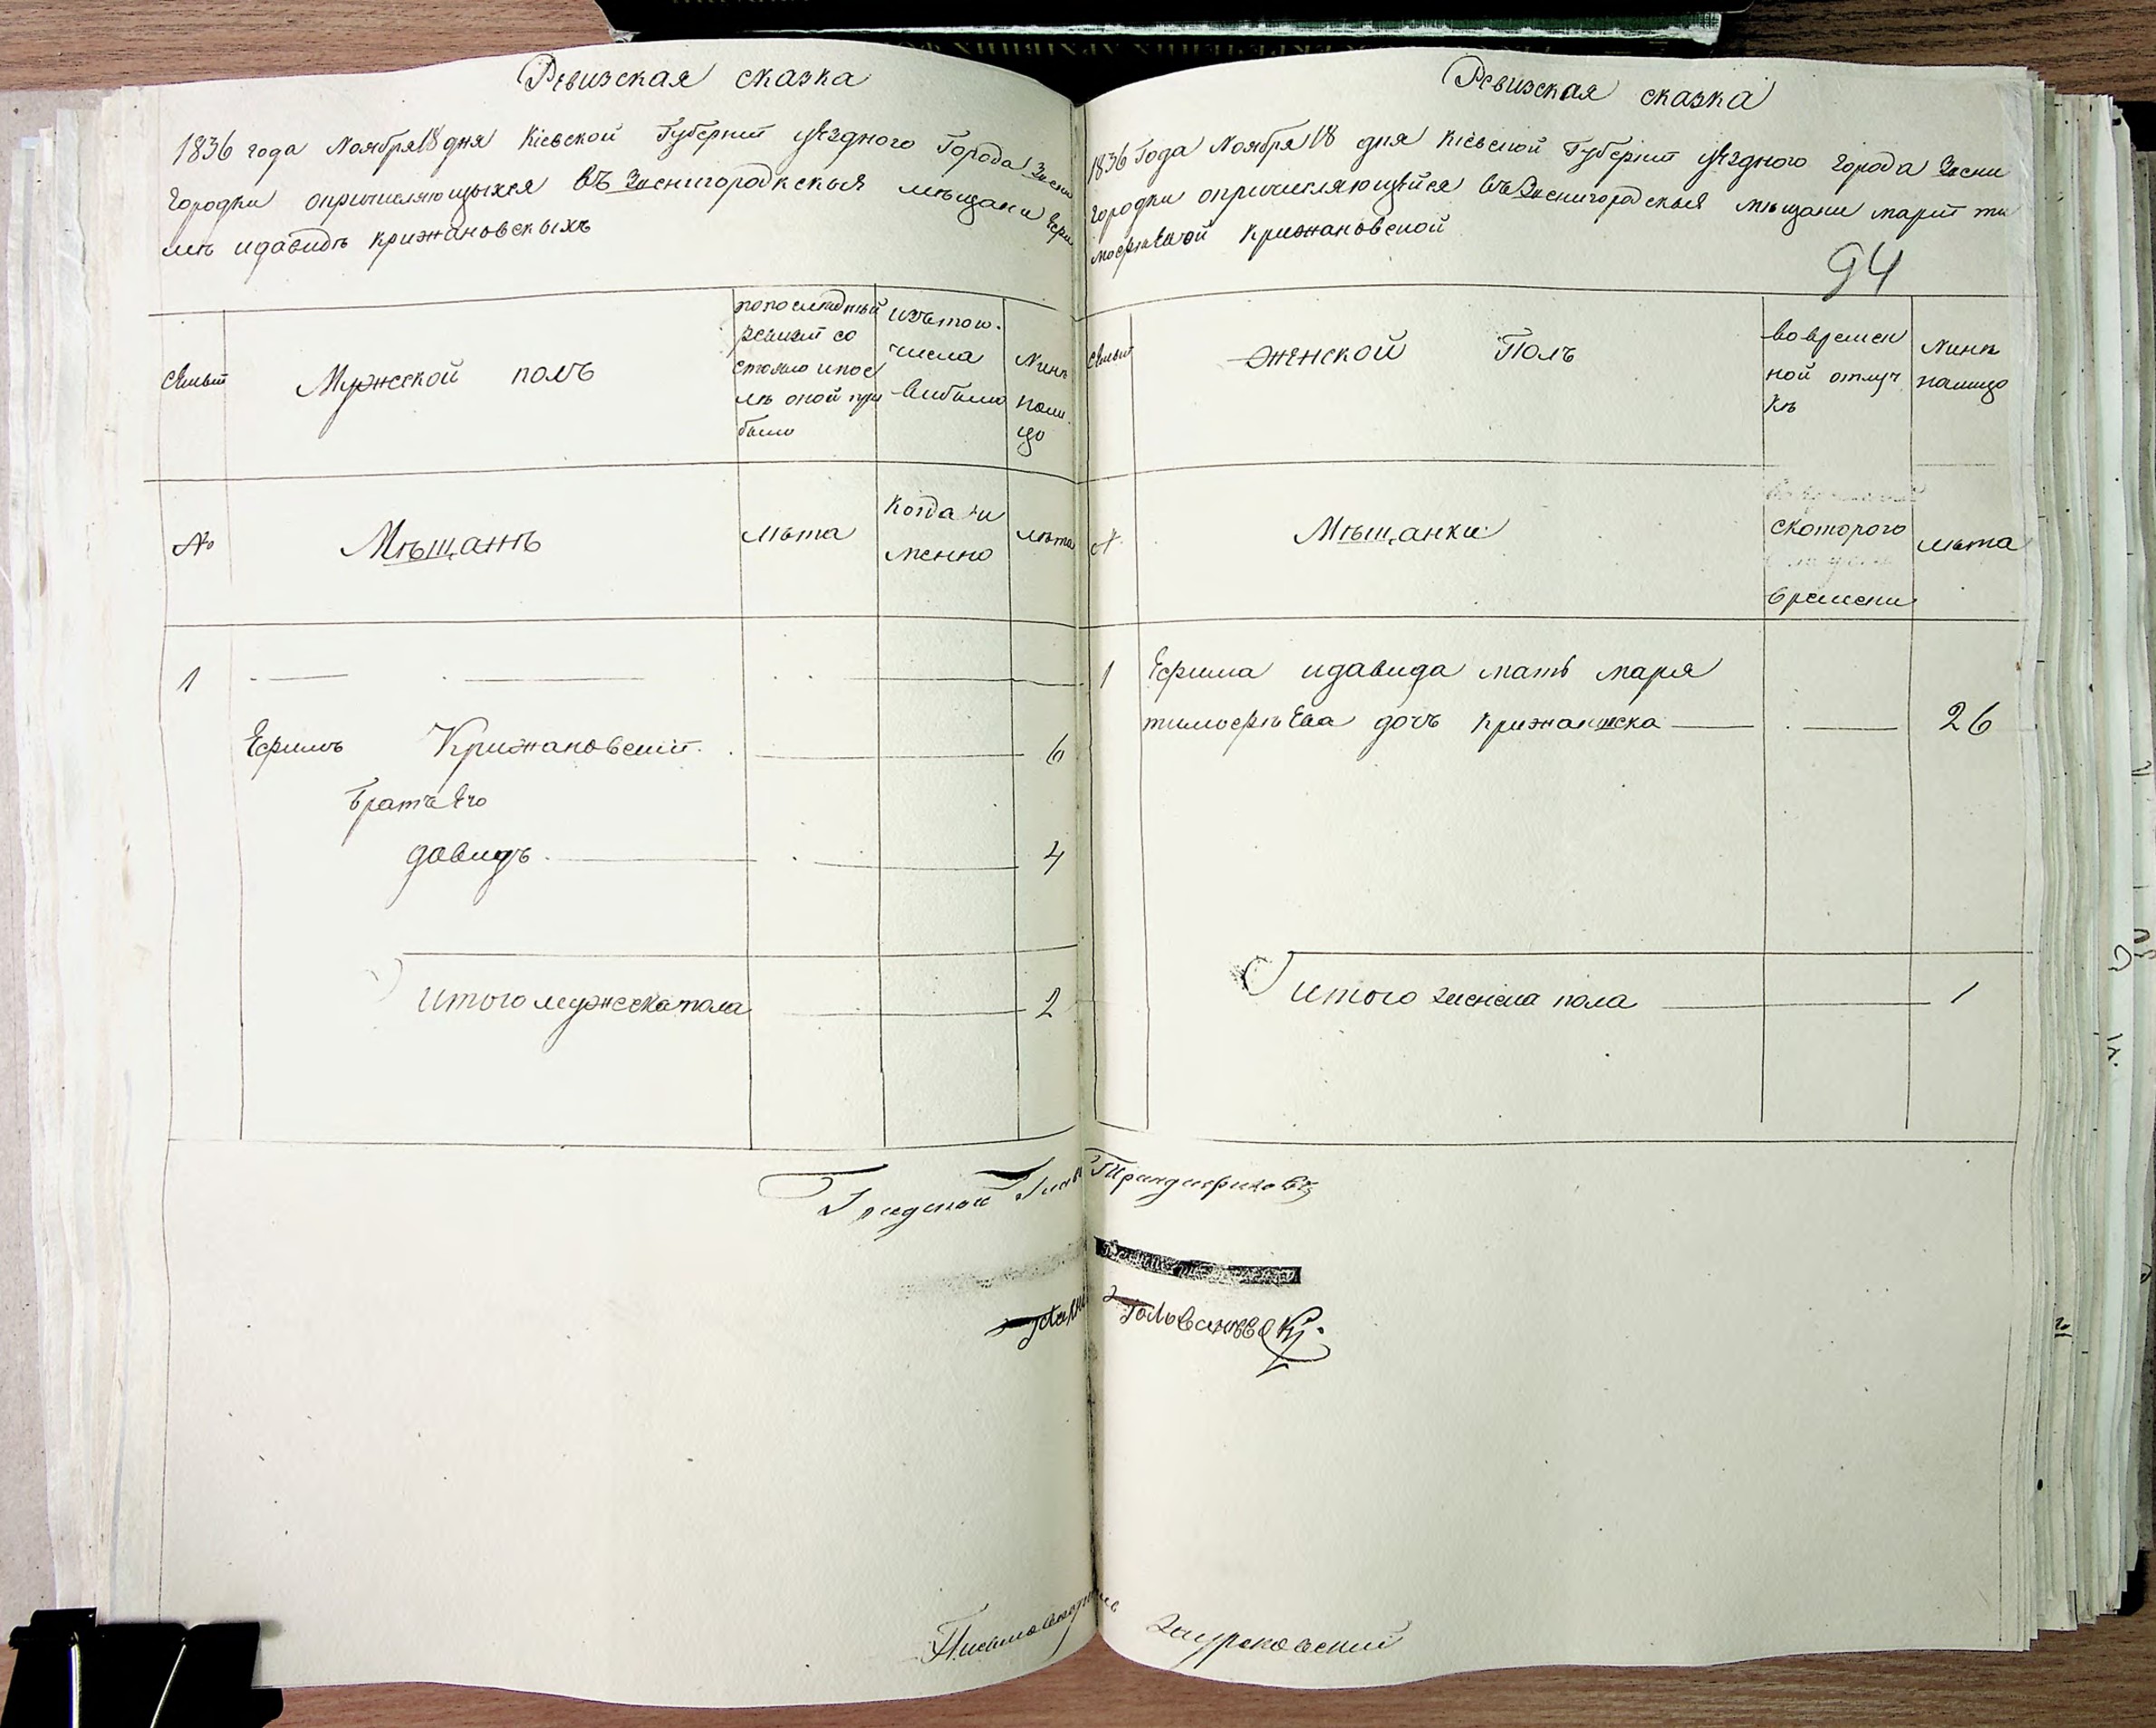 Ревизская сказка
1836 года Ноября 18 дня Кіевской Губерніи уѣздного Города Звени
Городки опричисляющыхся въ Звенигородкскыя мѣщани Ефи
мѣ идавидѣ крижановскыхъ
Семьи
Мужеской полъ
попоследнѣй
ревизіи со
стояло ипос
лѣ оной при
было
изътого
числа
выбыло
Нинѣ
нали
цо
№
Мѣщанѣ
лѣта
Когда и
менно
лѣта
1
Ефимъ Крижановскій 6
Братъ Его
давидъ 4
Итого мужеска пола 2
Ревизская сказка
1836 Года Ноября 18 дня Кіевской Губерніи уѣздного Города Звени
городки опричисляющѣйся въ Звенигородскыя мѣщани маріи ти
мофѣевной Крижановской
94
Семьи
женской Полъ
во времен
ной отлуч
кѣ
Нинѣ
налицо
№
Мѣщанки
скоторого
времени
лѣта
1 Ефима идавида мать маря
тимофѣева дочъ крижановска 26
Итого женска пола 1
Градской Глава
Голованевскій
Писмоводитель